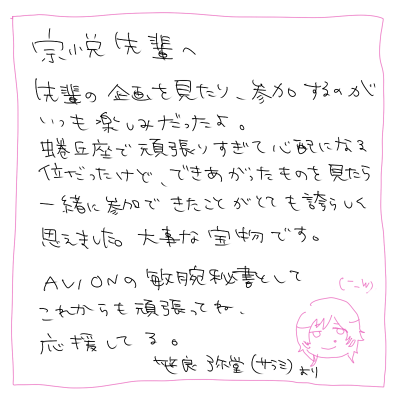 宗悦先輩へ
先輩の企画を見たり、参加するのが
いつも楽しみだったよ。
蜷丘座で頑張りすぎて心配になる
位だったけど、できあがったものを見たら
一緒に参加できたことがとても誇らしく
思えました。大事な宝物です。
AVIONの敏腕秘書として
これからも頑張ってね、
応援してる。
笹良 弥堂(サラミ)より